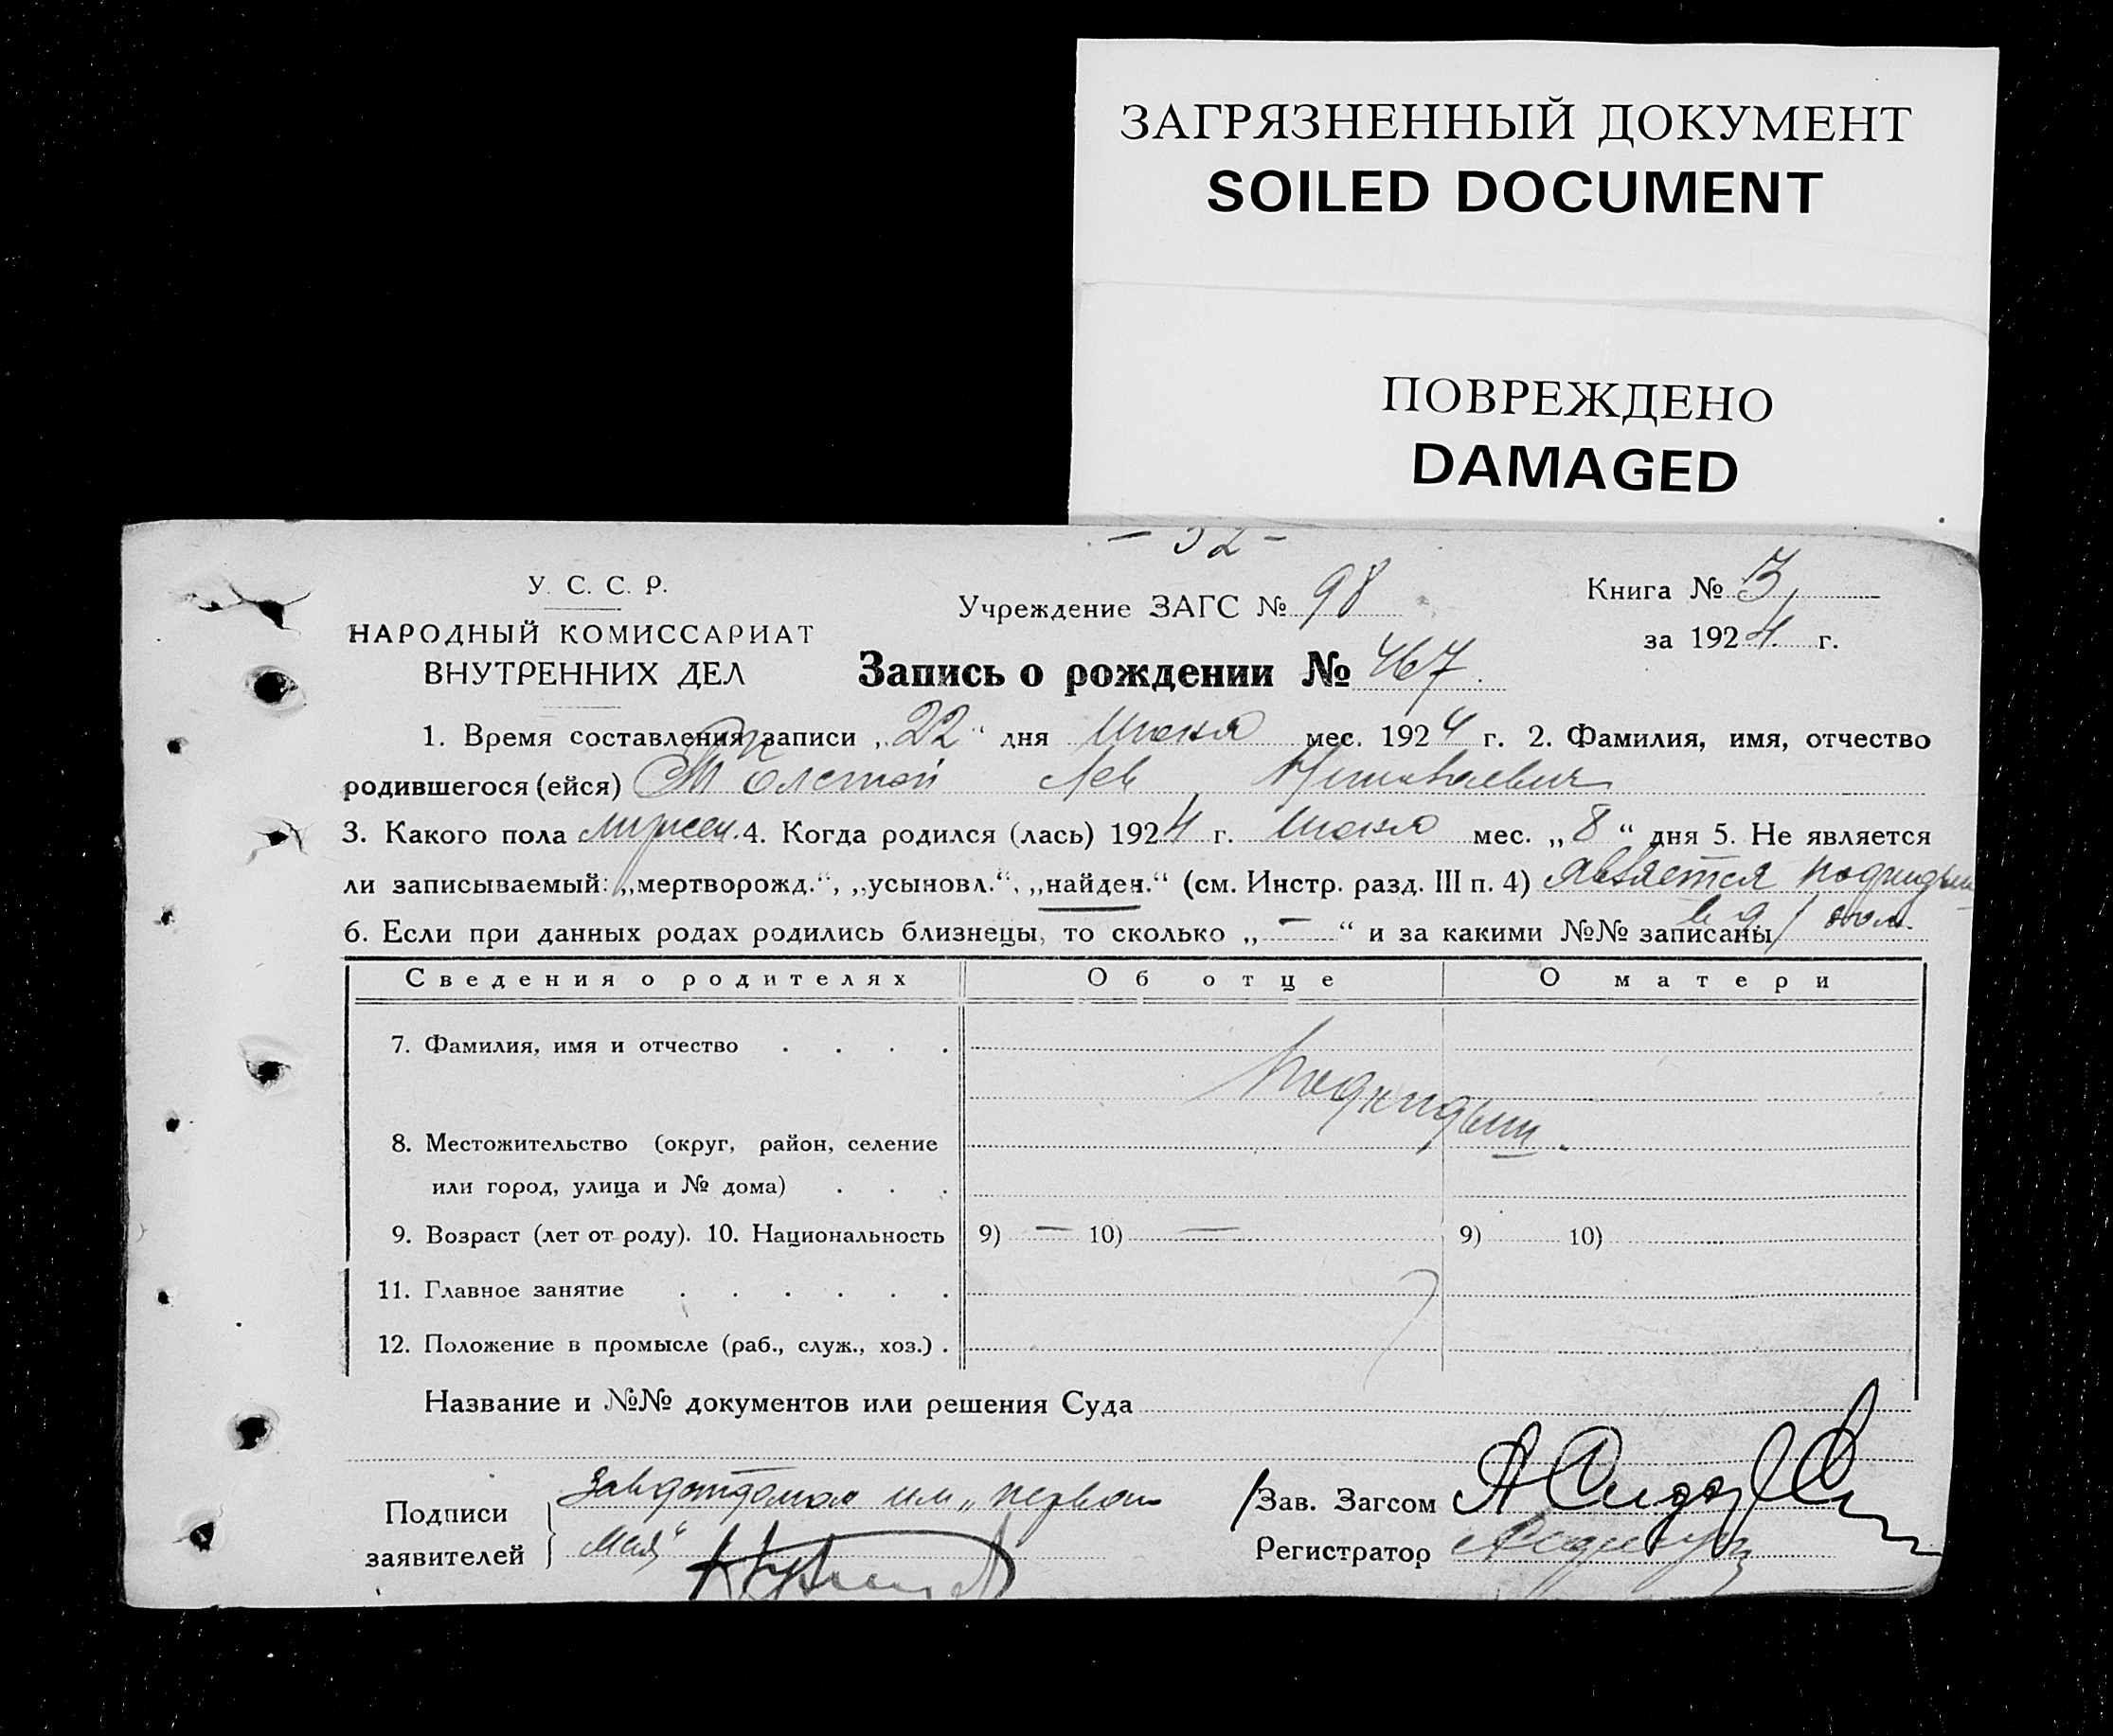 ЗАГРЯЗНЕННЫЙ ДОКУМЕНТ
SOILED DOCUMENT
ПОВРЕЖДЕНО
DAMAGED
– 32 –
У. С. С. Р.
НАРОДНЫЙ КОМИССАРИАТ
ВНУТРЕННИХ ДЕЛ
Учреждение ЗАГС № 98
Книга № 3
за 1924 г.
Запись о рождении № 467
1. Время составления записи „22“ дня Июля мес. 1924 г. 2. Фамилия, имя, отчество
родившегося (ейся) Толстой Лев Николаевич
3. Какого пола мужск. 4. Когда родился (лась) 1924 г. Июля мес. „8“ дня 5. Не является
ли записываемый: „мертворожд.“, „усыновл.“, „найден.“ (см. Инстр. разд. III п. 4) является подкидыш
6. Если при данных родах родились близнецы, то сколько „–“ и за какими №№ записаны
Сведения о родителях Об отце О матери
7. Фамилия, имя и отчество . . . .
Подкидыш.
8. Местожительство (округ, район, селение
или город, улица и № дома) . . .
9. Возраст (лет от роду). 10. Национальность 9) — 10) — 9) 10)
11. Главное занятие . . . . . .
12. Положение в промысле (раб., служ., хоз.) .
Название и №№ документов или решения Суда
Подписи
заявителей
им. „первого
мая“
Зав. Загсом
Регистратор